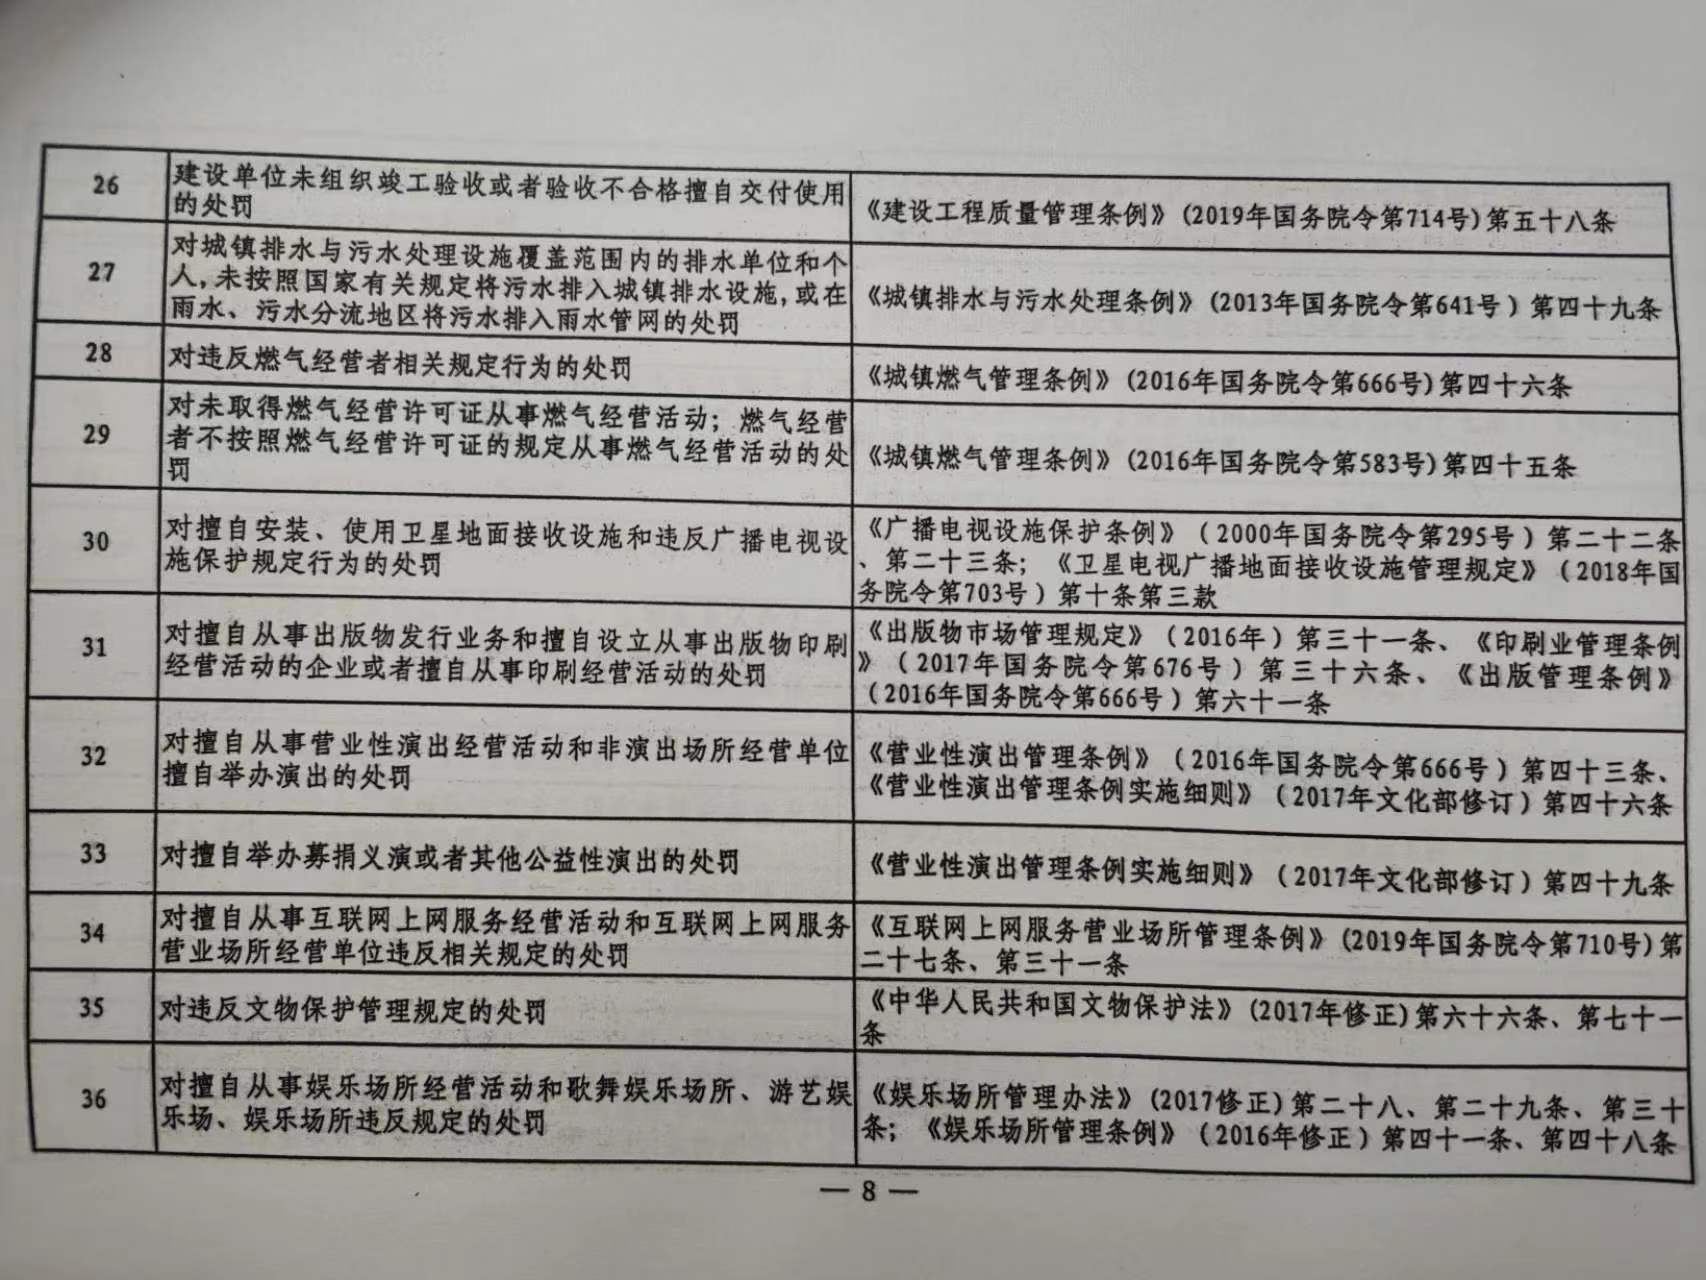 26
建设单位未组织竣工验收或者验收不合格擅自交付使用
的处罚
《建设工程质量管理条例》(2019年国务院令第714号)第五十八条
27
对城镇排水与污水处理设施覆盖范围内的排水单位和个
人,未按照国家有关规定将污水排入城镇排水设施,或在
雨水、污水分流地区将污水排入雨水管网的处罚
《城镇排水与污水处理条例》(2013年国务院令第641号)第四十九条
28
对违反燃气经营者相关规定行为的处罚
《城镇燃气管理条例》(2016年国务院令第666号)第四十六条
29
对未取得燃气经营许可证从事燃气经营活动；燃气经营
者不按照燃气经营许可证的规定从事燃气经营活动的处
罚
《城镇燃气管理条例》(2016年国务院令第583号)第四十五条
30
对擅自安装、使用卫星地面接收设施和违反广播电视设
施保护规定行为的处罚
《广播电视设施保护条例》（2000年国务院令第295号）第二十二条
、第二十三条；《卫星电视广播地面接收设施管理规定》（2018年国
务院令第703号）第十条第三款
31
对擅自从事出版物发行业务和擅自设立从事出版物印刷
经营活动的企业或者擅自从事印刷经营活动的处罚
《出版物市场管理规定》（2016年）第三十一条、《印刷业管理条例
》（2017年国务院令第676号）第三十六条、《出版管理条例》
（2016年国务院令第666号）第六十一条
32
对擅自从事营业性演出经营活动和非演出场所经营单位
擅自举办演出的处罚
《营业性演出管理条例》（2016年国务院令第666号）第四十三条、
《营业性演出管理条例实施细则》（2017年文化部修订）第四十六条
33
对擅自举办募捐义演或者其他公益性演出的处罚
《营业性演出管理条例实施细则》（2017年文化部修订）第四十九条
34
对擅自从事互联网上网服务经营活动和互联网上网服务
营业场所经营单位违反相关规定的处罚
《互联网上网服务营业场所管理条例》(2019年国务院令第710号)第
二十七条、第三十一条
35
对违反文物保护管理规定的处罚
《中华人民共和国文物保护法》(2017年修正)第六十六条、第七十一
条
36
对擅自从事娱乐场所经营活动和歌舞娱乐场所、游艺娱
乐场、娱乐场所违反规定的处罚
《娱乐场所管理办法》(2017修正)第二十八、第二十九条、第三十
条；《娱乐场所管理条例》（2016年修正）第四十一条、第四十八条
— 8 —